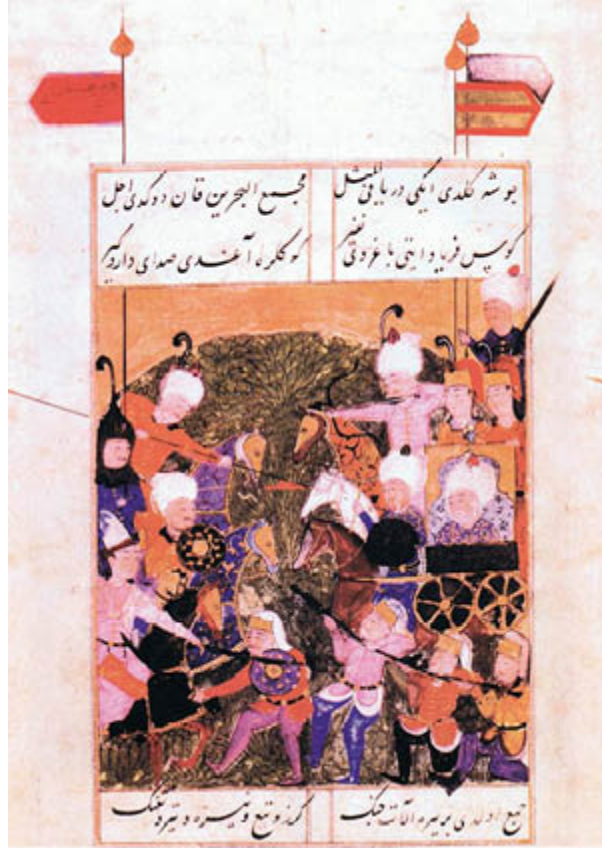 بو شه کلدی ایکی دریا فی المثل مجمع البحرین قان دوکدی اجل
کوس فریاد ایتی نفیر کوکلره آغدی صدای دار کیر
جمع اولدی بر یره آلات جنک کرز و تیغ و نیزه و تیر تفنک